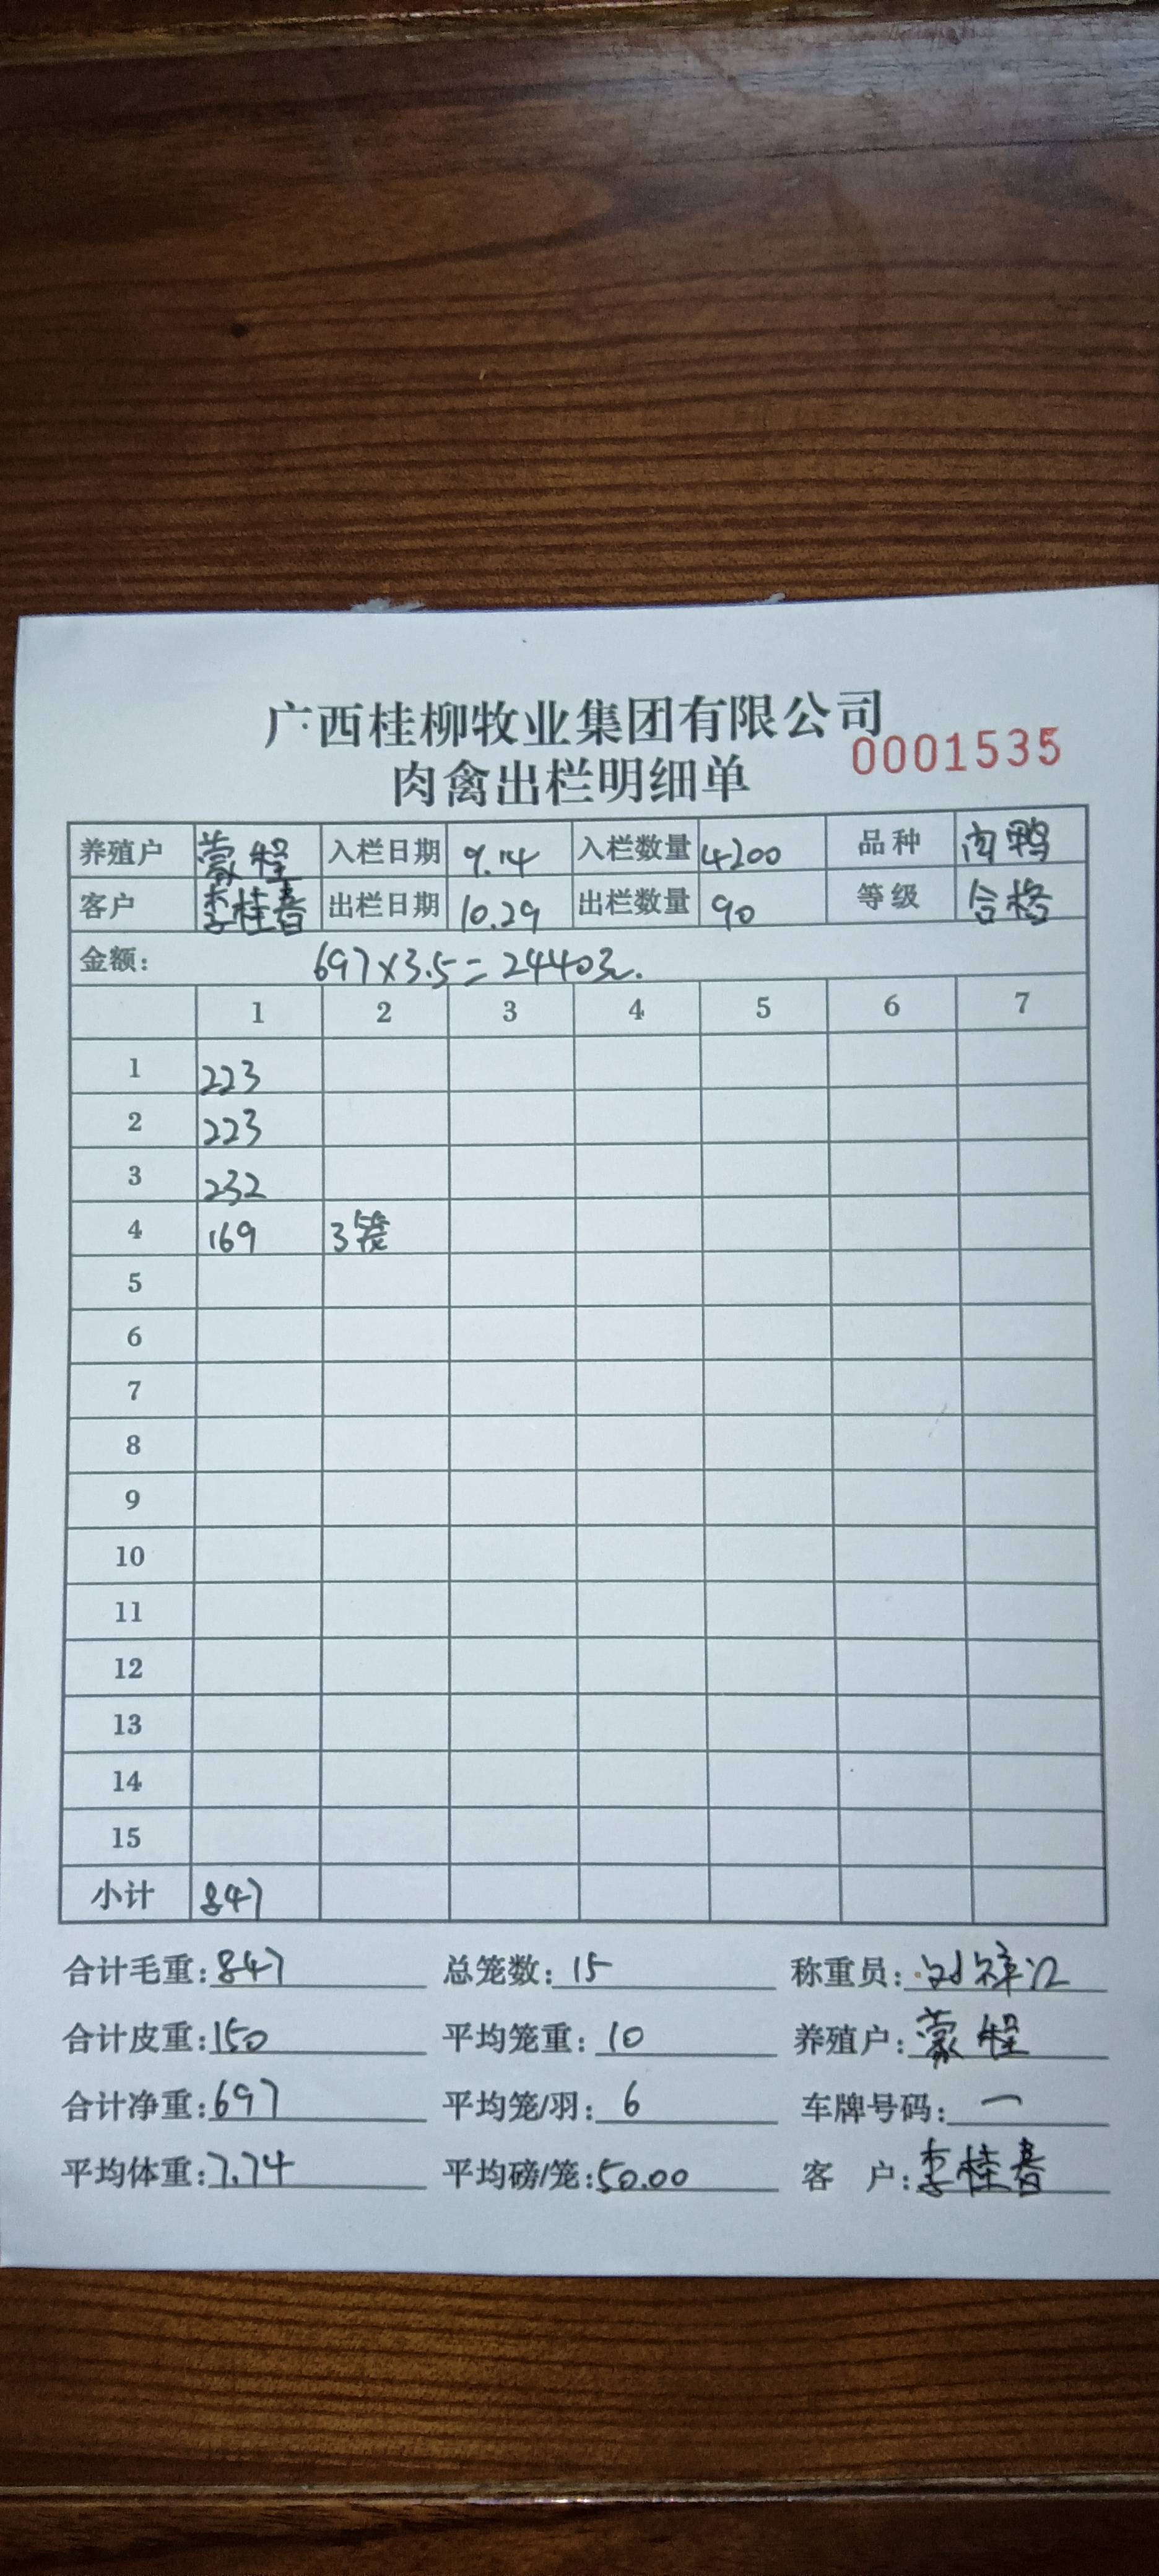 广西桂柳牧业集团有限公司
0001535
肉禽出栏明细单
养殖户 蒙程 入栏日期 9.14 入栏数量 4200 品种 肉鸭
客户 李桂春 出栏日期 10.29 出栏数量 90 等级 合格
金额: 697×3.5=2440元.
1 2 3 4 5 6 7
1 223
2 223
3 232
4 169 3笼
5
6
7
8
9
10
11
12
13
14
15
小计 847
合计毛重:847 总笼数:15 称重员:
合计皮重:150 平均笼重:10 养殖户:蒙程
合计净重:697 平均笼/羽:6 车牌号码:一
平均体重:7.74 平均磅/笼:50.00 客 户:李桂春